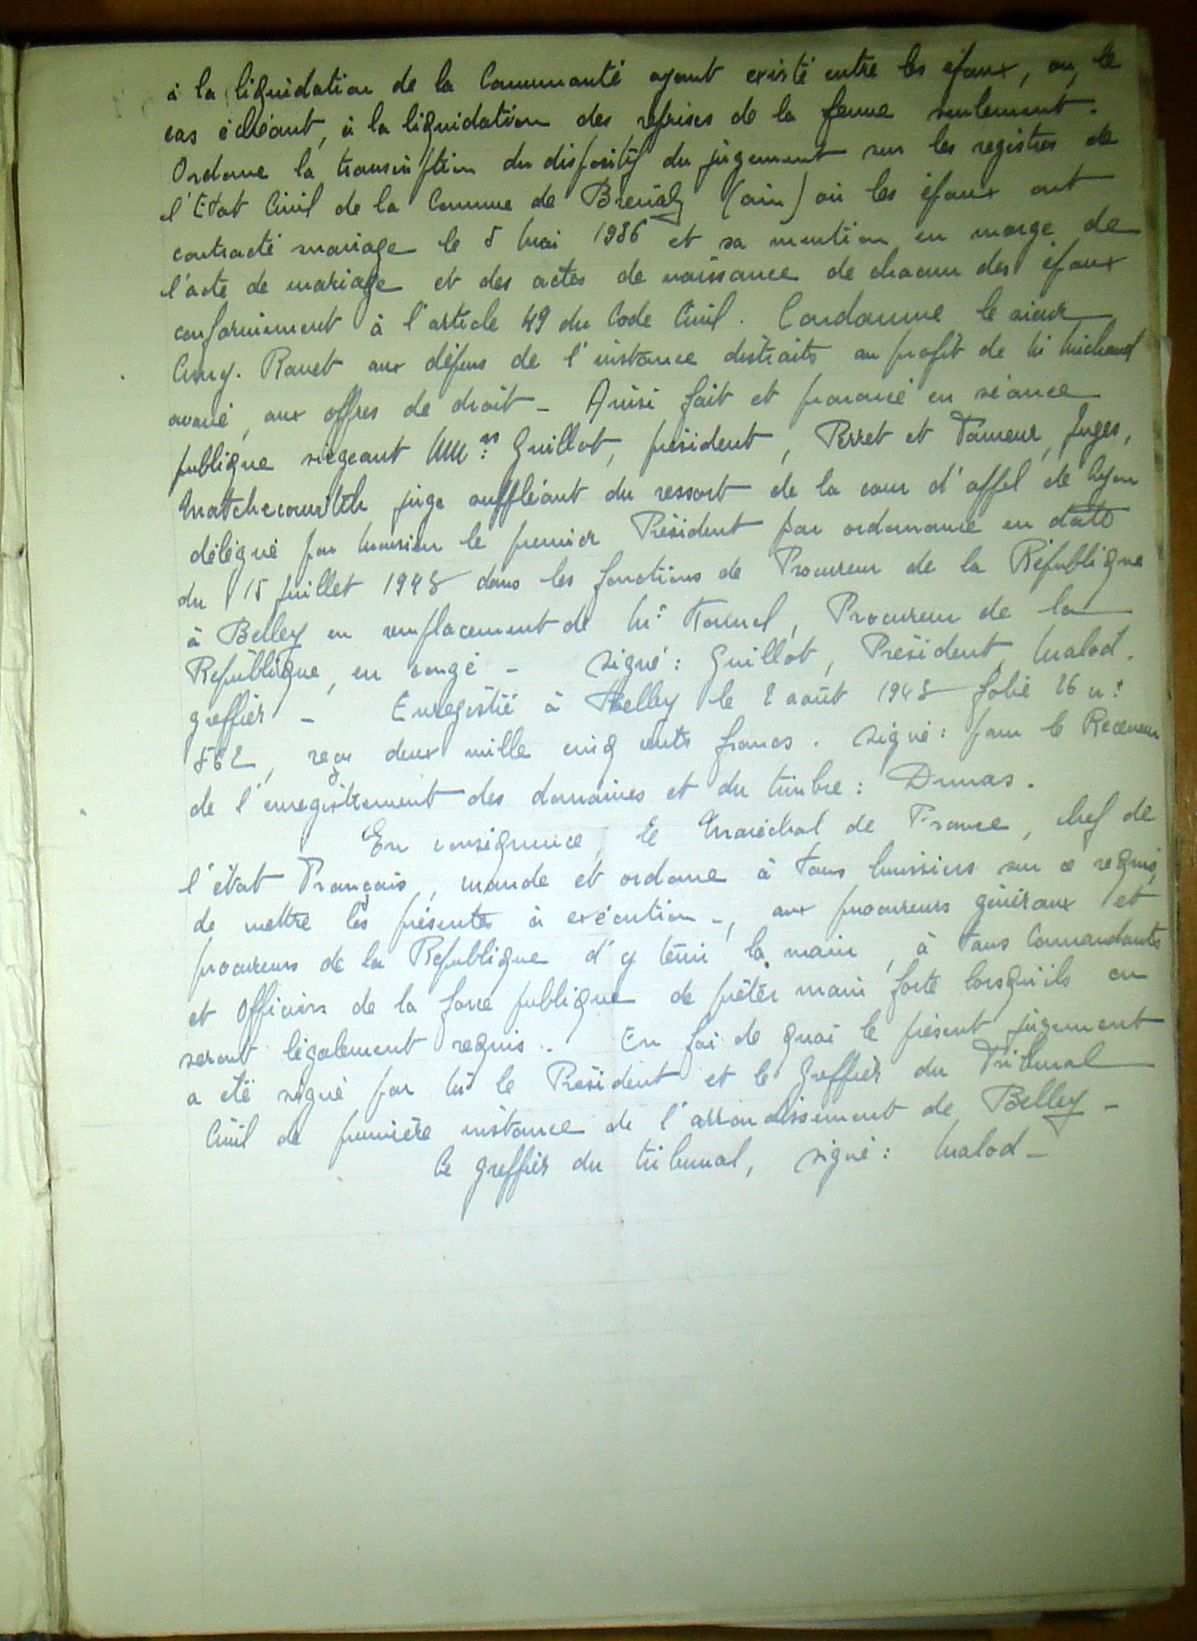 à la liquidation de la Communauté ayant existé entre les époux, ou, le
cas échéant, à la liquidation des reprises de la femme seulement.
Ordonne la transcription du dispositif du jugement sur les registres de
l'Etat Civil de la Commune de (ain) où les époux ont
contracté mariage le 8 Mai 1936 et sa mention en marge de
l'acte de mariage et des actes de naissance de chacun des époux
conformément à l'article 49 du Code Civil. Condamne le sieur
aux dépens de l'instance distraits au profit de Mᵉ Michaud
avoué, aux offres de droit - Ainsi fait et prononcé en séance
publique siégeant MMʳˢ Guillot, président, Perret et Juges,
juge suppléant du ressort de la cour d'appel de Lyon
délégué par Monsieur le premier Président par ordonnance en date
du 15 juillet 1943 dans les fonctions de Procureur de la République
à Belley en remplacement de Mʳ Procureur de la
République, en congé - signé : Guillot, Président, Malod.
greffier - Enregistré à Belley le 2 août 1943 folio 26 nº
562, reçu deux mille cinq cents francs. signé : pour le Receveur
de l'enregistrement des domaines et du timbre : Dumas.
En conséquence, le Maréchal de France, chef de
l'état Français, mande et ordonne à tous huissiers sur ce requis,
de mettre les présentes à exécution -, aux procureurs généraux et
procureurs de la République d'y tenir la main, à tous Commandants
et Officiers de la force publique de prêter main forte lorsqu'ils en
seront légalement requis. En foi de quoi le présent jugement
a été signé par le Président et le Greffier du Tribunal
Civil de première instance de l'arrondissement de Belley -
Le greffier du tribunal, signé : Malod -